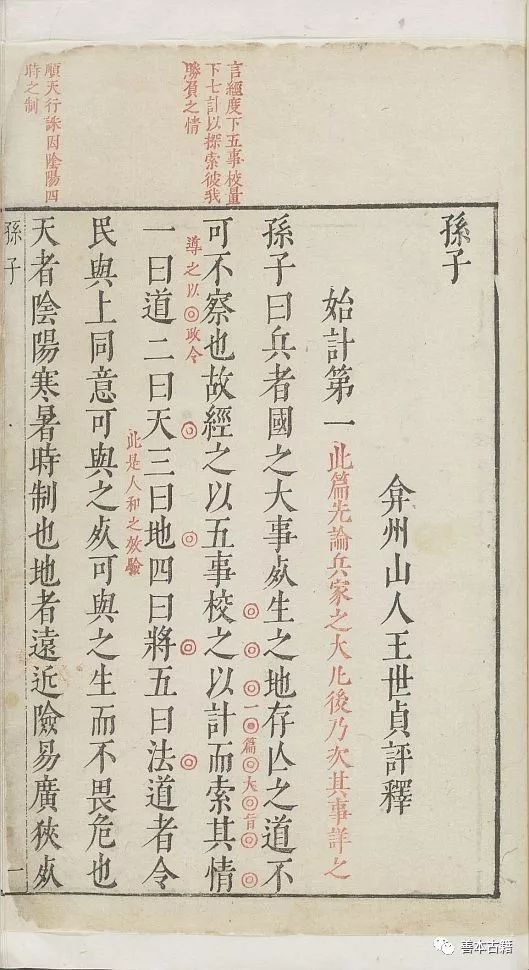 孫子
弇州山人王世貞評釋
始計第一 此篇先論兵家之大凡後乃次其事詳之
言經度下五事校量
下七計以探索彼我
勝負之情
孫子曰兵者國之大事死生之地存亡之道不
一篇大旨
可不察也故經之以五事校之以計而索其情
導之以政令
一曰道二曰天三曰地四曰將五曰法道者令
此是人和之效驗
民與上同意可與之死可與之生而不畏危也
順天行誅因陰陽四
時之制
天者陰陽寒暑時制也地者遠近險易廣狹死
孫子
一
善本古籍